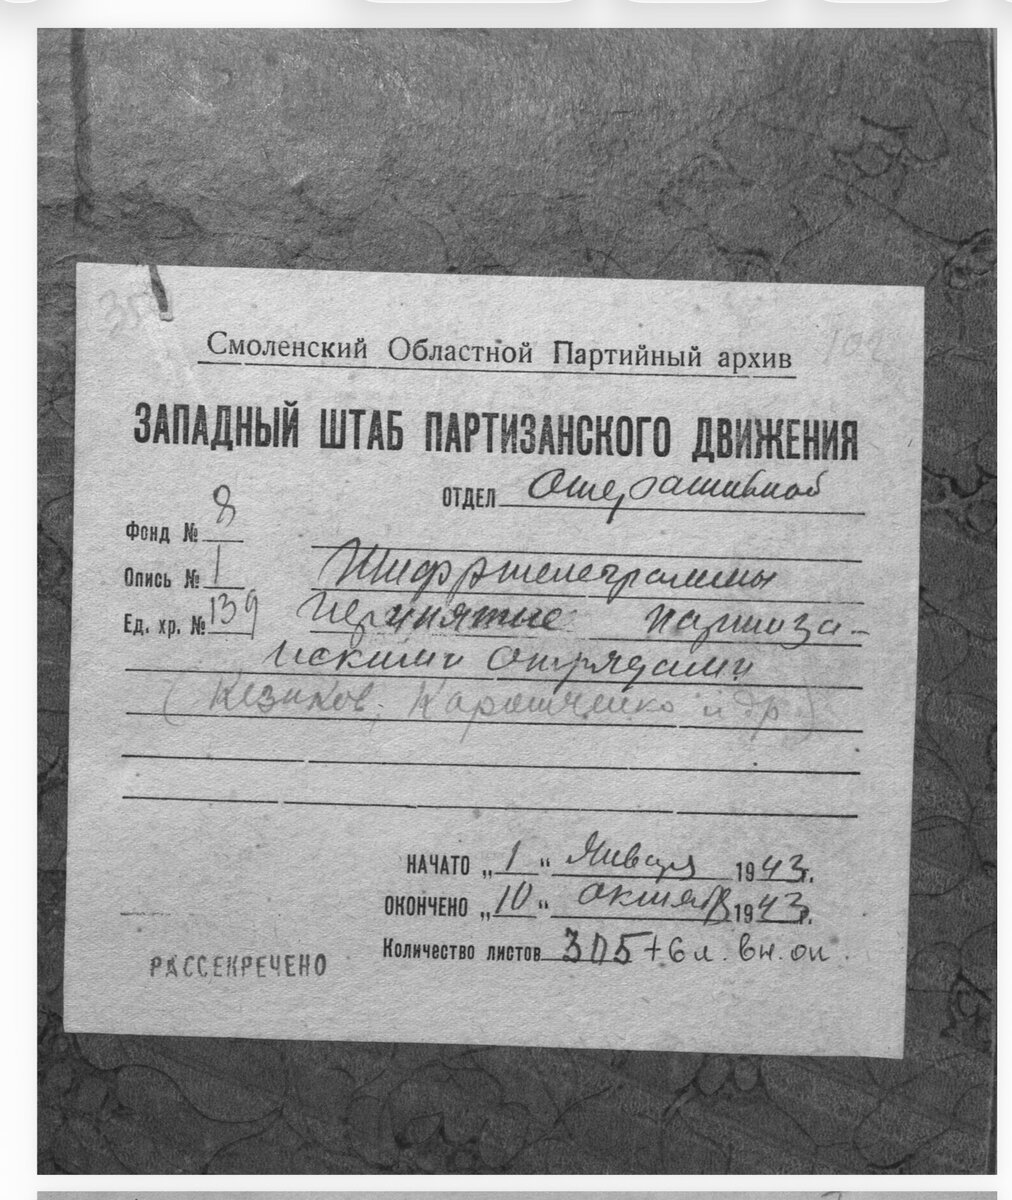 Смоленский Областной Партийный архив
ЗАПАДНЫЙ ШТАБ ПАРТИЗАНСКОГО ДВИЖЕНИЯ
ОТДЕЛ Оперативной
Фонд № 8
Опись № 1
Ед. хр. № 139
Шифртелеграммы
принятые партиза-
нскими отрядами
( Казиков, и др.)
НАЧАТО „1“ Января 1943 г.
ОКОНЧЕНО „10“ октября 1943 г.
Количество листов 305 + 6 л. вн. оп.
РАССЕКРЕЧЕНО